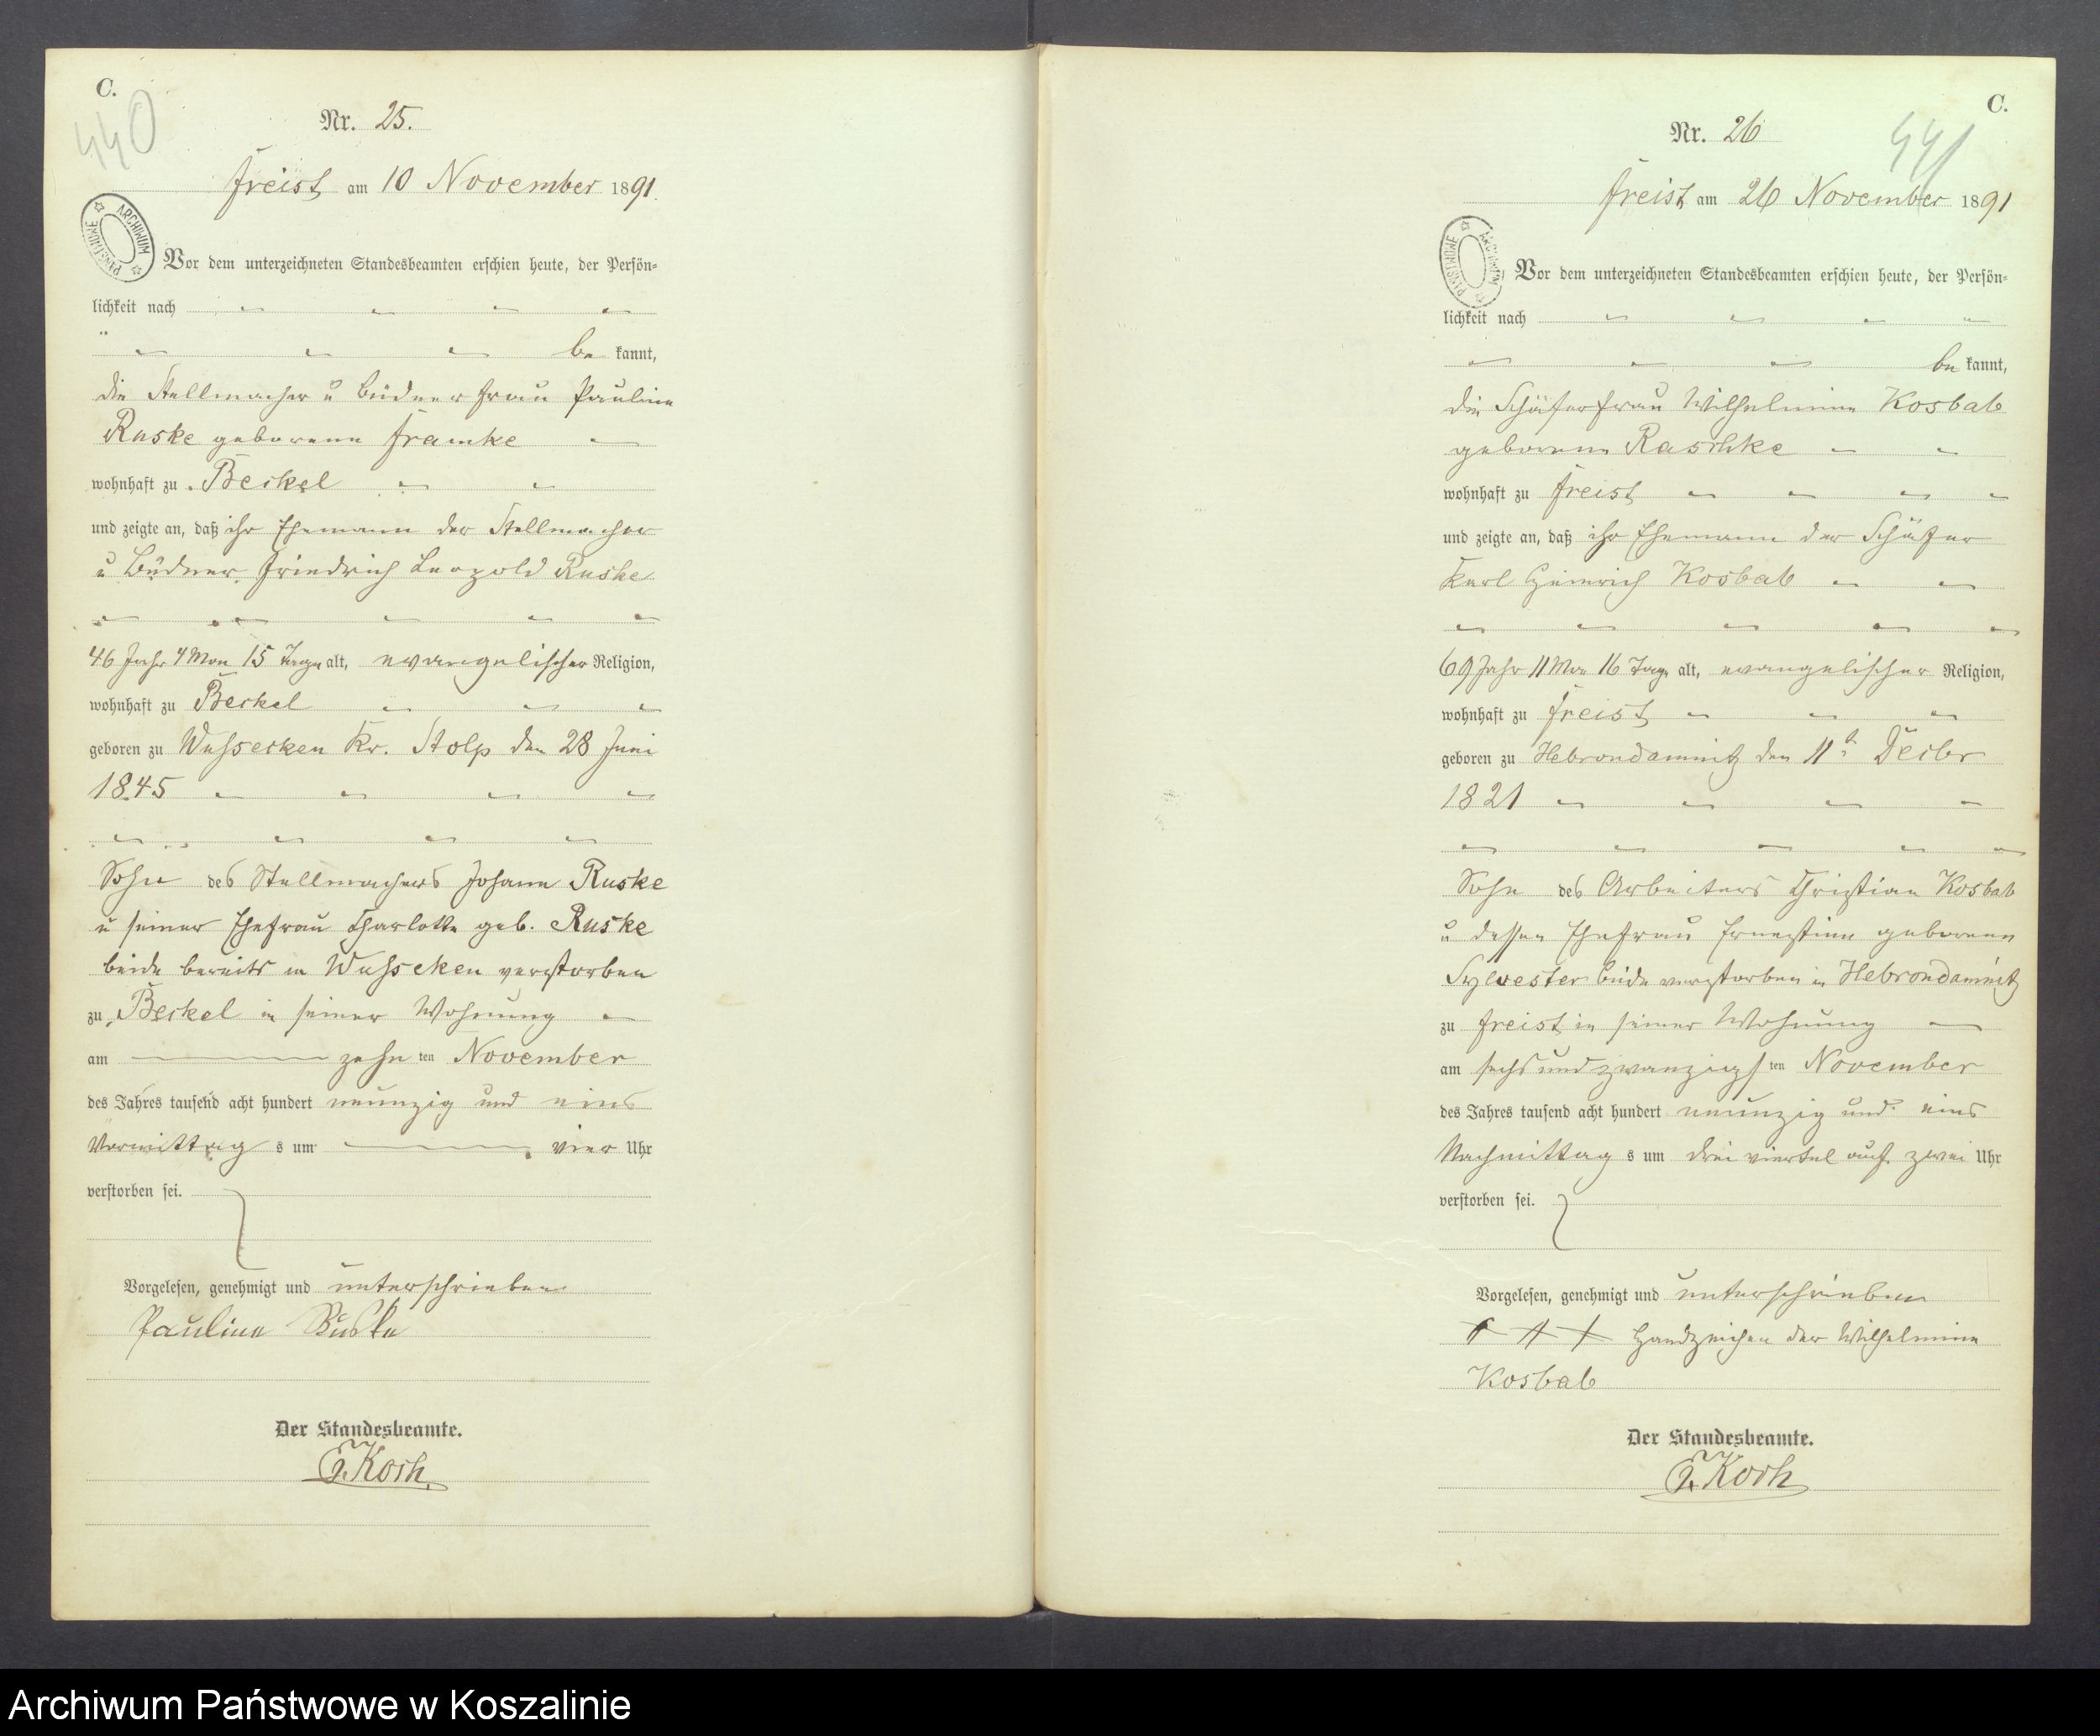 C.
440
Nr. 25.
Freist am 10 November 1891.
ARCHIWUM PAŃSTWOWE
Vor dem unterzeichneten Standesbeamten erschien heute, der Persön-
lichkeit nach
be kannt,
die Stellmacher u Büdner frau Pauline
Ruske geborene Framke
wohnhaft zu Beckel
und zeigte an, daß ihr Ehemann der Stellmacher
u Büdner Friedrich Leopold Ruske
46 Jahr 4 Mon 15 Tage alt, evangelischer Religion,
wohnhaft zu Beckel
geboren zu Wussecken Kr. Stolp den 28 Juni
1845
Sohn des Stellmachers Johann Ruske
u seiner Ehefrau Charlotte geb. Ruske
beide bereits in Wusseken verstorben
zu Beckel in seiner Wohnung
am zehn ten November
des Jahres tausend acht hundert neunzig und eins
Vormittag s um vier Uhr
verstorben sei.
Vorgelesen, genehmigt und unterschrieben
Pauline Ruske
Der Standesbeamte.
Koch
C.
441
Nr. 26
Freist am 26 November 1891
ARCHIWUM PAŃSTWOWE
Vor dem unterzeichneten Standesbeamten erschien heute, der Persön-
lichkeit nach
be kannt,
die Schäferfrau Wilhelmine Kosbab
geborene Raschke
wohnhaft zu Freist
und zeigte an, daß ihr Ehemann der Schäfer
Karl Heinrich Kosbab
69 Jahr 11 Mon 16 Tage alt, evangelischer Religion,
wohnhaft zu Freist
geboren zu Hebrondamnitz den 11t Decbr
1821
Sohn des Arbeiters Christian Kosbab
u dessen Ehefrau Ernestine geborene
Sylvester beide verstorben in Hebrondamnitz
zu Freist in seiner Wohnung
am sechsundzwanzigs ten November
des Jahres tausend acht hundert neunzig und eins
Nachmittag s um drei viertel auf zwei Uhr
verstorben sei.
Vorgelesen, genehmigt und unterschrieben
+ + + Handzeichen der Wilhelmine
Kosbab
Der Standesbeamte.
Koch
Archiwum Państwowe w Koszalinie